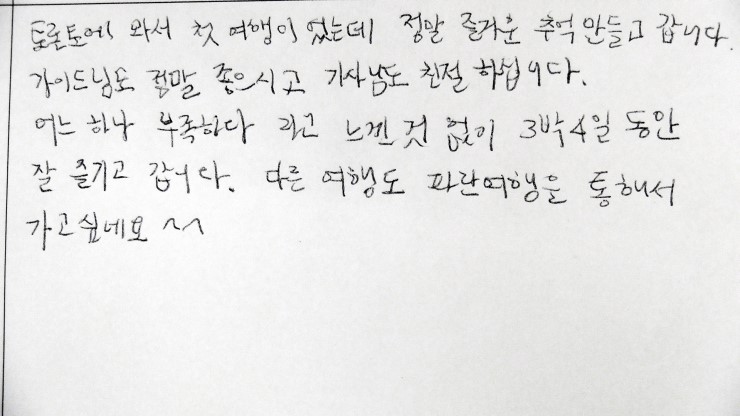 토론토에 와서 첫 여행이었는데 정말 즐거운 추억 만들고 갑니다.
가이드님도 정말 좋으시고 기사님도 친절 하십니다.
어느 하나 부족하다 라고 느낀것 없이 3박4일 동안
잘 즐기고 갑니다. 다른 여행도 파란여행을 통해서
가고싶네요 ^^